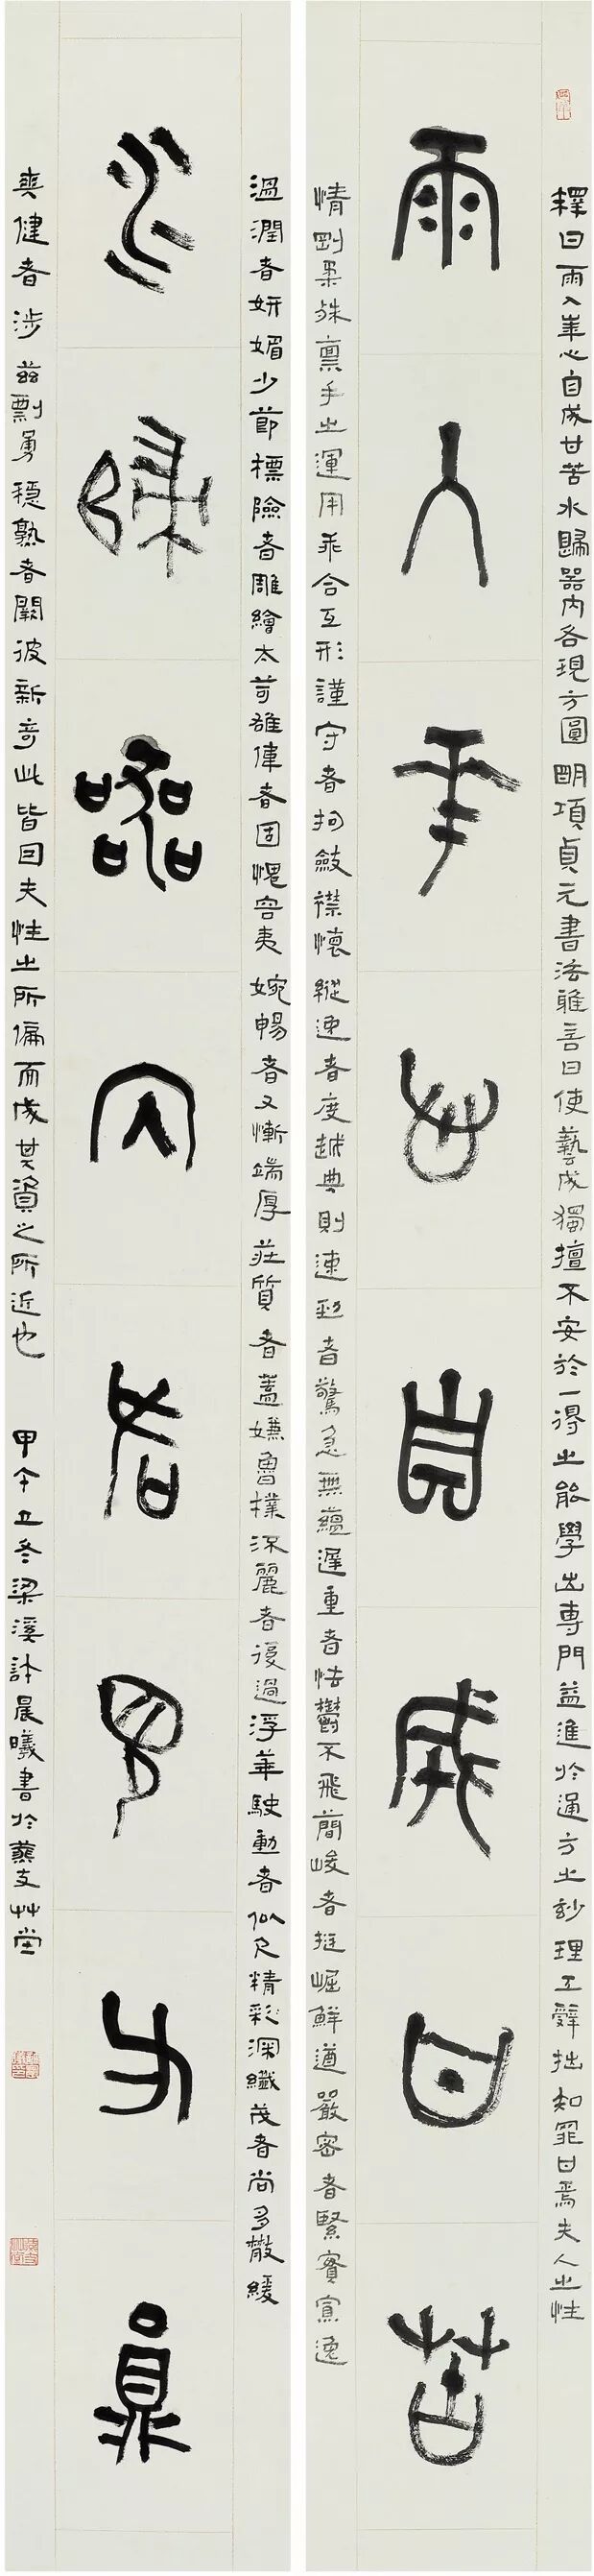 釋曰雨入華心自成甘苦水歸器內各現方圓明項貞元書法雅言曰使藝成獨擅不安於一得之能學出專門益進於通方之妙理工辭拙知罪甘焉夫人之性
雨入華心自成甘苦
情剛柔殊稟手之運用乖合互形謹守者拘斂襟懷縱逸者度越典則速勁者驚急無蘊遲重者怯鬱不飛簡峻者挺崛鮮遒嚴密者緊實寡逸
溫潤者妍媚少節標險者雕繪太苛雄偉者固愧容夷婉暢者又慚端厚莊質者蓋嫌魯樸流麗者復過浮華駛動者似欠精彩深纖茂者尚多散緩
水歸器內各現方圓
爽健者涉茲剽勇穩熟者闕彼新奇此皆因夫性之所偏而成其資之所近也 甲午立冬梁溪許晨曦書於艸堂